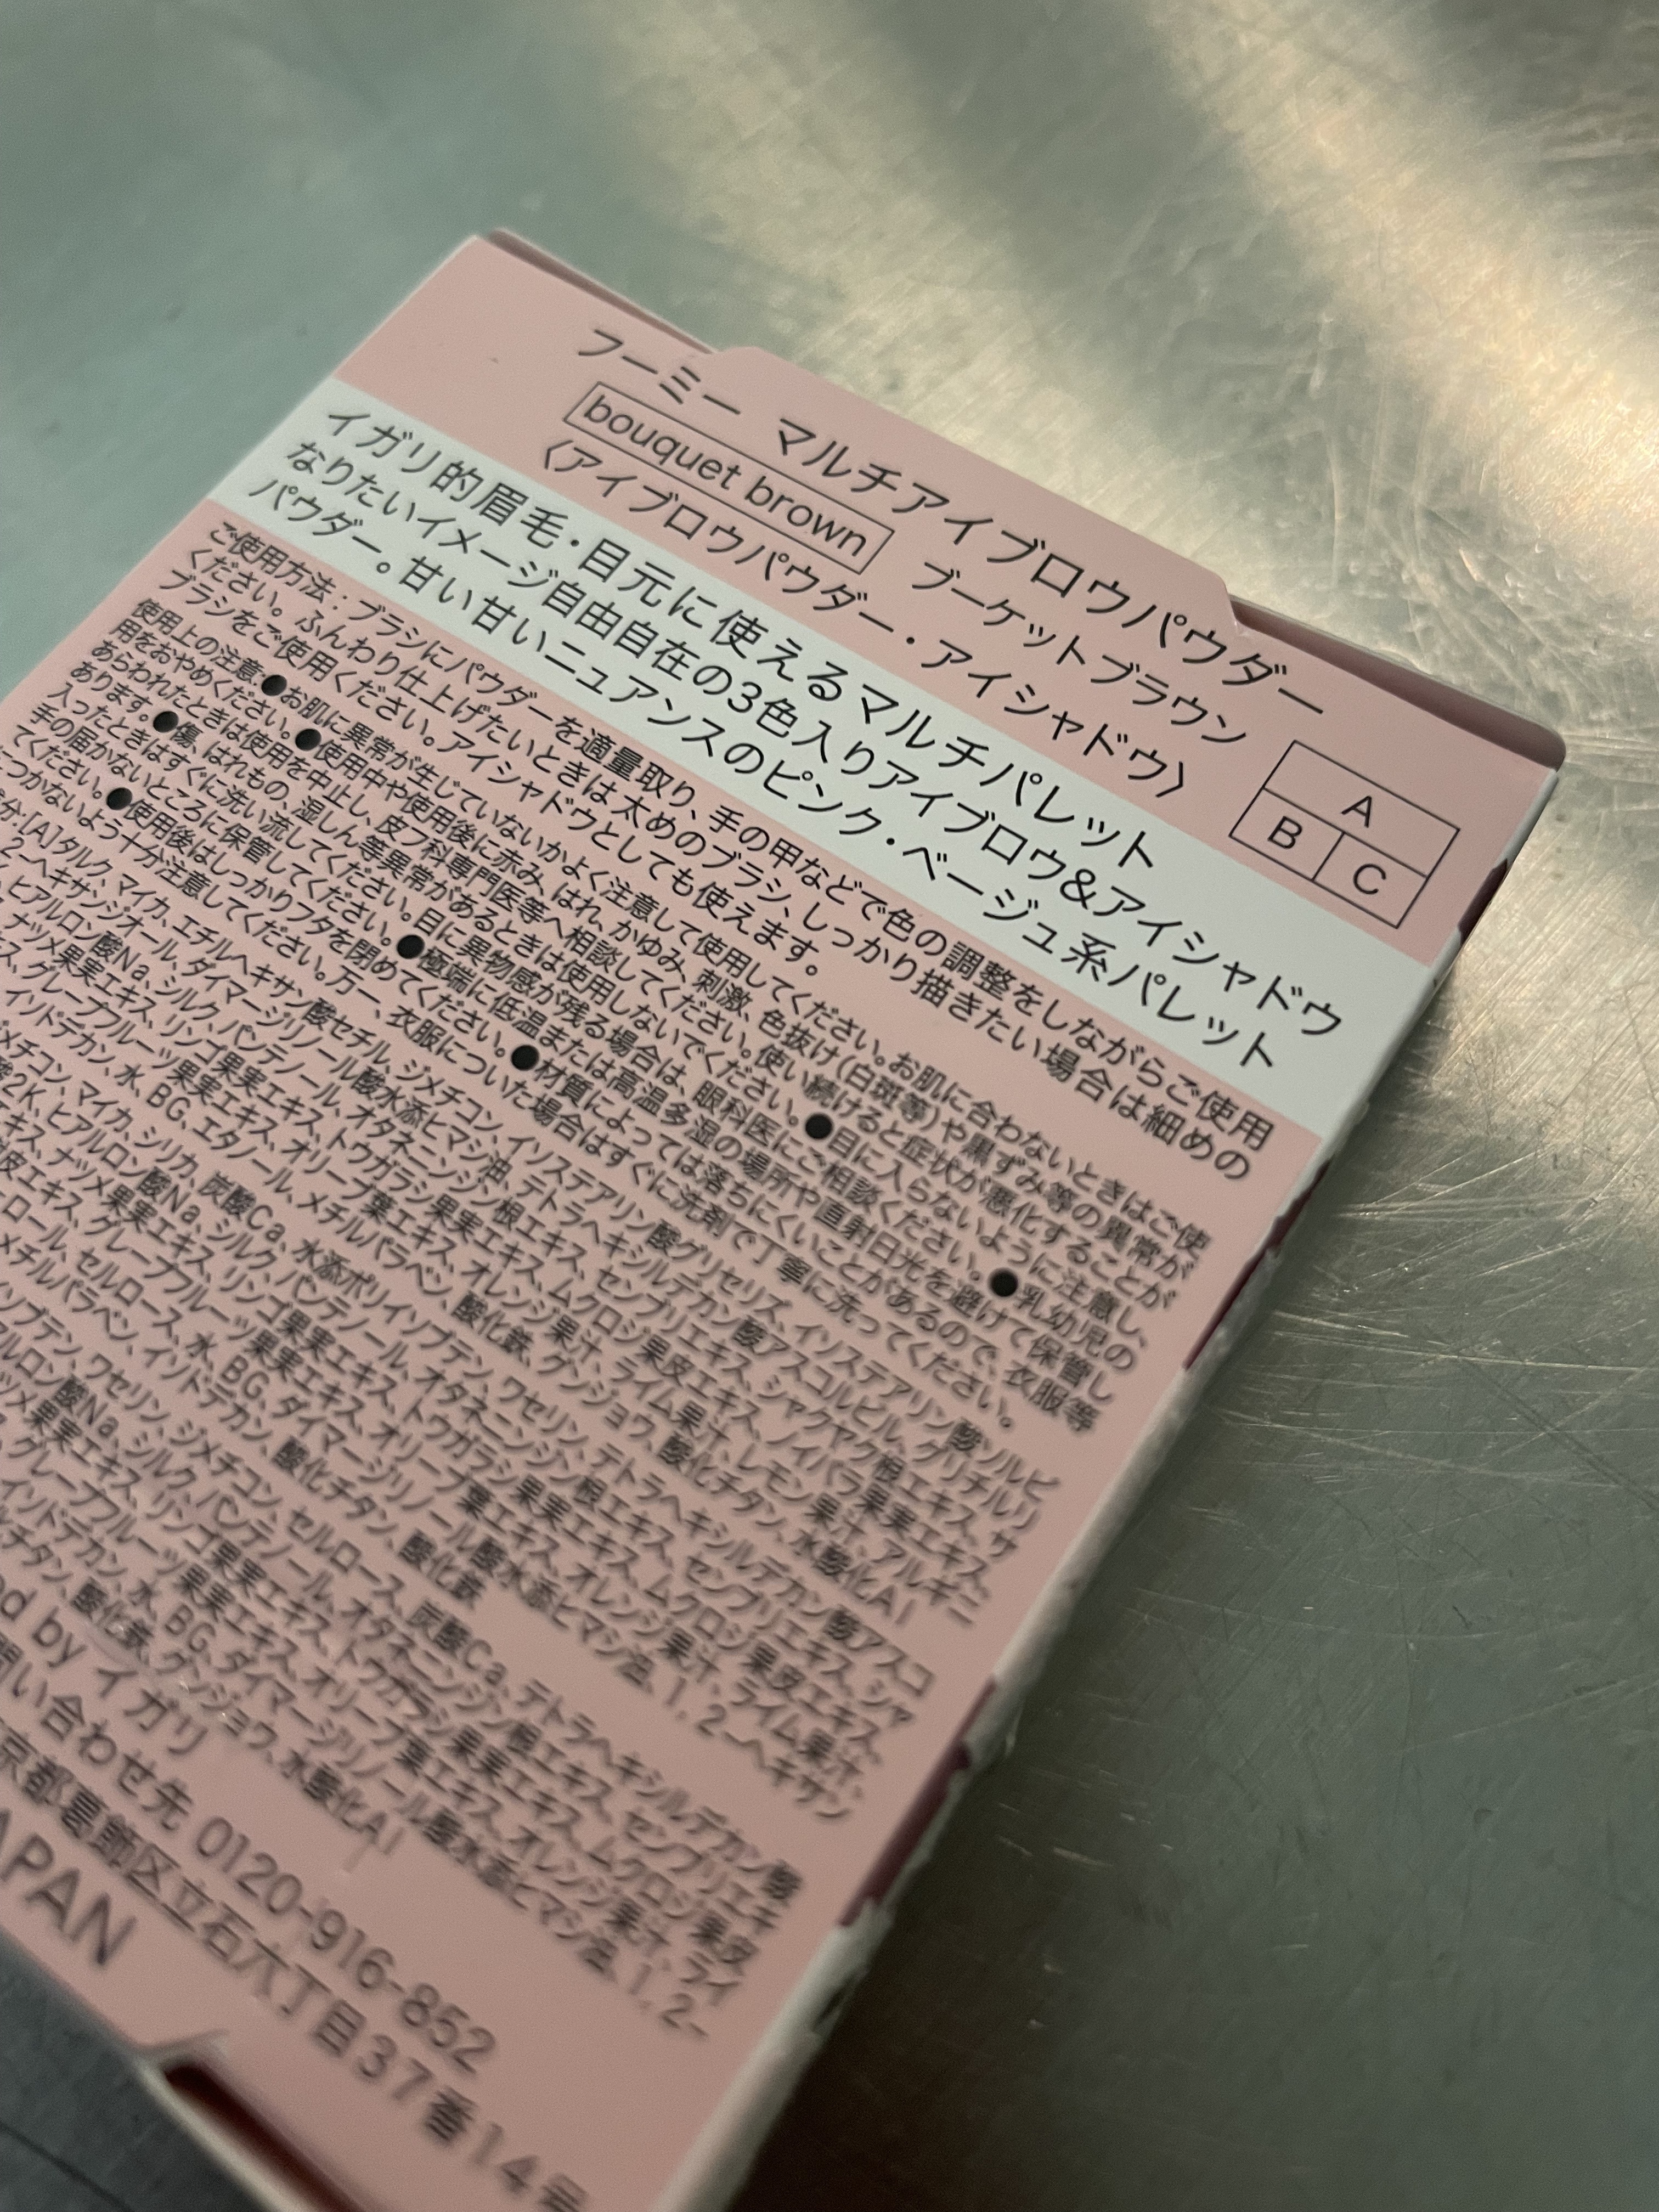 フーミー マルチアイブロウパウダー
bouquet brown ブーケットブラウン
〈アイブロウパウダー・アイシャドウ〉
A
B C
イガリ的眉毛・目元に使えるマルチパレット
なりたいイメージ自由自在の3色入りアイブロウ&アイシャドウ
パウダー。甘い甘いニュアンスのピンク・ベージュ系パレット
ご使用方法:ブラシにパウダーを適量取り、手の甲などで色の調整をしながらご使用
ください。ふんわり仕上げたいときは太めのブラシ、しっかり描きたい場合は細めの
ブラシをご使用ください。アイシャドウとしても使えます。
使用上の注意:●お肌に異常が生じていないかよく注意して使用してください。お肌に合わないときはご使
用をおやめください。●使用中や使用後に赤み、はれ、かゆみ、刺激、色抜け(白斑等)や黒ずみ等の異常が
あらわれたときは使用を中止し、皮フ科専門医等へ相談してください。使い続けると症状が悪化することが
あります。●傷、はれもの、湿しん等異常があるときは使用しないでください。●目に入らないように注意し、
入ったときはすぐに洗い流してください。目に異物感が残る場合は、眼科医にご相談ください。●乳幼児の
手の届かないところに保管してください。●極端に低温または高温多湿の場所や直射日光を避けて保管し
てください。●使用後はしっかりフタを閉めてください。●材質によっては落ちにくいことがあるので、衣服等
につかないよう十分注意してください。万一、衣服についた場合はすぐに洗剤で丁寧に洗ってください。
分:[A]タルク、マイカ、エチルヘキサン酸セチル、ジメチコン、イソステアリン酸グリセリズ、イソステアリン酸ソルビ
2-ヘキサンジオール、ダイマージリノール酸水添ヒマシ油、テトラヘキシルデカン酸アスコルビル、グリチルリ
ヒアルロン酸Na、シルク、パンテノール、オタネニンジン根エキス、センブリエキス、シャクヤク根エキス、サ
ナツメ果実エキス、リンゴ果実エキス、トウガラシ果実エキス、ムクロジ果皮エキス、ノイバラ果実エキス、
ス、グレープフルーツ果実エキス、オリーブ葉エキス、オレンジ果汁、ライム果汁、レモン果汁、アルギニ
イソドデカン、水、BG、エタノール、メチルパラベン、酸化鉄、グンジョウ、酸化チタン、水酸化Al
メチコン、マイカ、シリカ、炭酸Ca、水添ポリイソブテン、ワセリン、テトラヘキシルデカン酸アスコ
酸2K、ヒアルロン酸Na、シルク、パンテノール、オタネニンジン根エキス、センブリエキス、シャ
キス、ナツメ果実エキス、リンゴ果実エキス、トウガラシ果実エキス、ムクロジ果皮エキス、
皮エキス、グレープフルーツ果実エキス、オリーブ葉エキス、オレンジ果汁、ライム果汁、
ロール、セルロース、水、BG、ダイマージリノール酸水添ヒマシ油、1,2-ヘキサン
メチルパラベン、イソドデカン、酸化チタン、酸化鉄
ソブテン、ワセリン、ジメチコン、セルロース、炭酸Ca、テトラヘキシルデカン酸
ルロン酸Na、シルク、パンテノール、オタネニンジン根エキス、センブリエキ
ツメ果実エキス、リンゴ果実エキス、トウガラシ果実エキス、ムクロジ果皮
グレープフルーツ果実エキス、オリーブ葉エキス、オレンジ果汁、ライ
イソドデカン、水、BG、ダイマージリノール酸水添ヒマシ油、1,2-
チタン、酸化鉄、グンジョウ、水酸化Al
ed by イガリ
問い合わせ先 0120-916-852
京都葛飾区立石六丁目37番14号
APAN